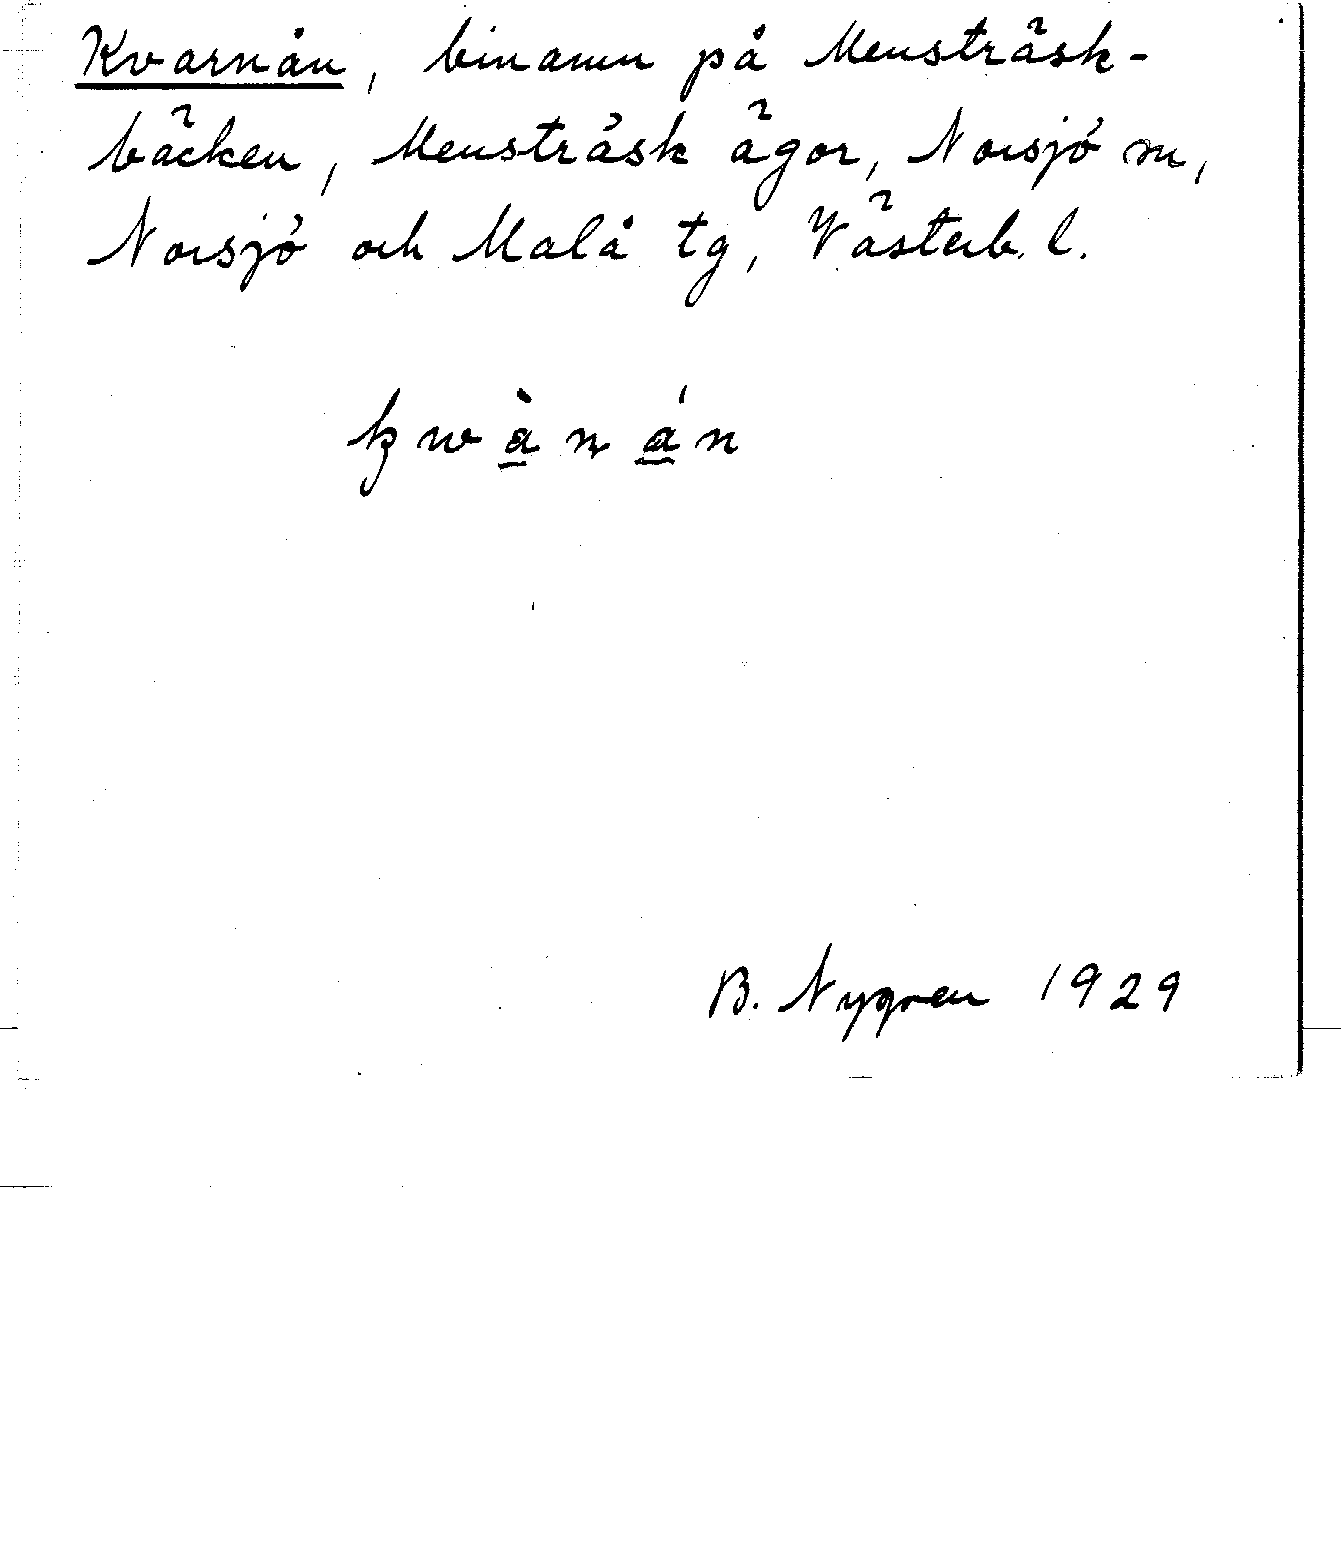 Kvarnån, binamn på Mensträsk-
bäcken, Mensträsk ägor, Norsjö sn,
Norsjö och Malå tg, Västerb. l.
kwà̲ná̲n
B. Nygren 1929